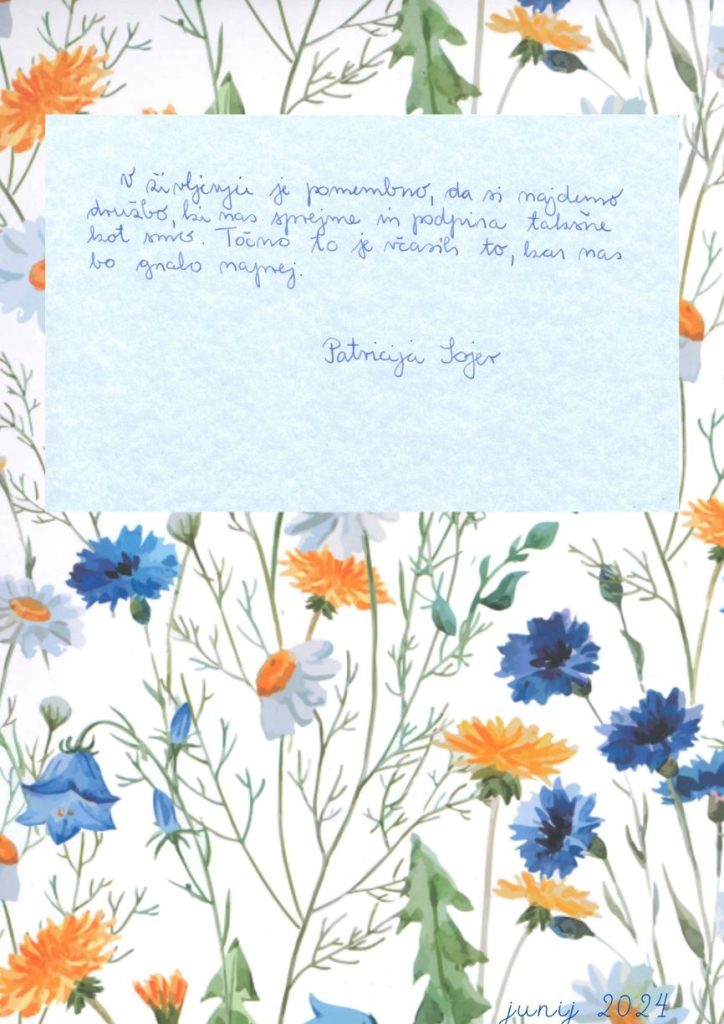 V življenju je pomembno, da si najdemo
družbo, ki nas sprejme in podpira takšne
kot smo. Točno to je včasih to, kar nas
bo gnalo naprej.
Patricija Sojer
junij 2024